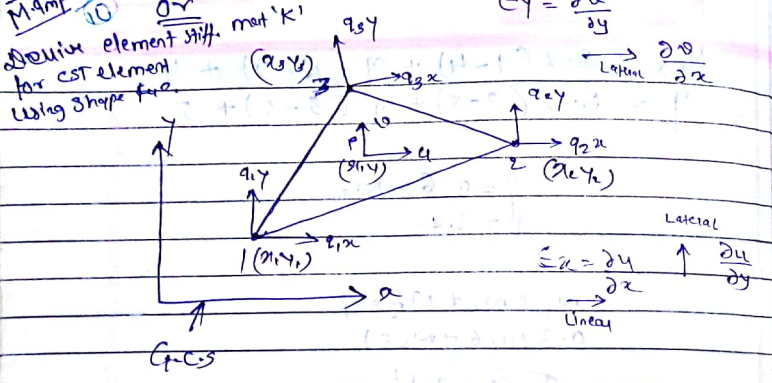 10 or
Derive element stiff. mat 'K'
for CST element
using shape
q3y
(x3 y3)
3
q3x
∂y
Lateral ∂v/∂x
Y
q2y
v
P
u
(x,y)
q2x
2 (x2 y2)
q1y
q1x
1 (x1, y1)
Lateral
Ex = ∂u/∂x
∂u/∂y
Linear
x
G.C.S